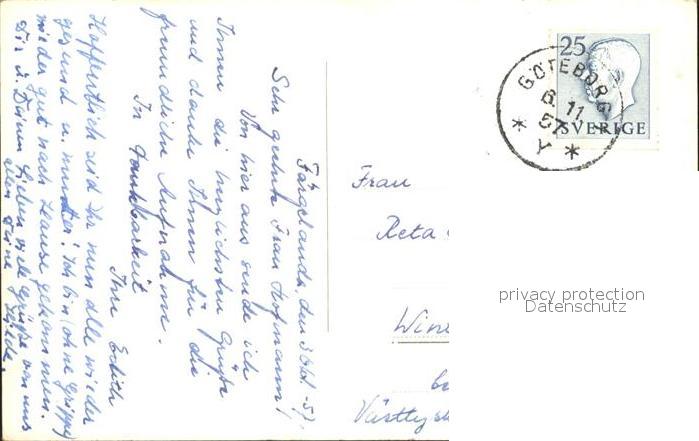 Färgelanda, den 3 Okt. -57.
Sehr geehrte Frau Hofmann!
Von hier aus sende ich
Ihnen die herzlichsten Grüße
und danke Ihnen für die
freundliche Aufnahme.
In Dankbarkeit
Ihre
Hoffentlich seid Ihr nun alle wieder
gesund u. munter! Ich bin ohne Grippe
wieder gut nach Hause gekommen.
Dir u. Deinen Lieben viele Grüße von uns
allen Deine
Frau
Reta
25
SVERIGE
GÖTEBORG
6. 11.
57
Y
privacy protection
Datenschutz